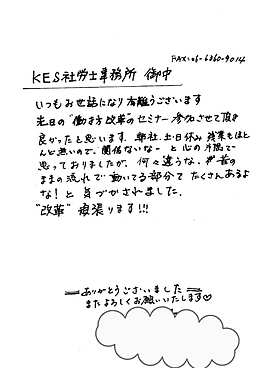 FAX:06-6360-9014
KES社労士事務所 御中
いつもお世話になり有難うございます
先日の"働き方改革"のセミナー参加させて頂き
良かったと思います。弊社、土日休み 残業もほと
んど無いので、関係ないなーと心の片隅で
思っておりましたが、何々違うな。昔の
ままの流れで動いてる部分でたくさんあるよ
な!と気づかされました。
"改革"頑張ります!!!
ありがとうございました
またよろしくお願いいたします♡